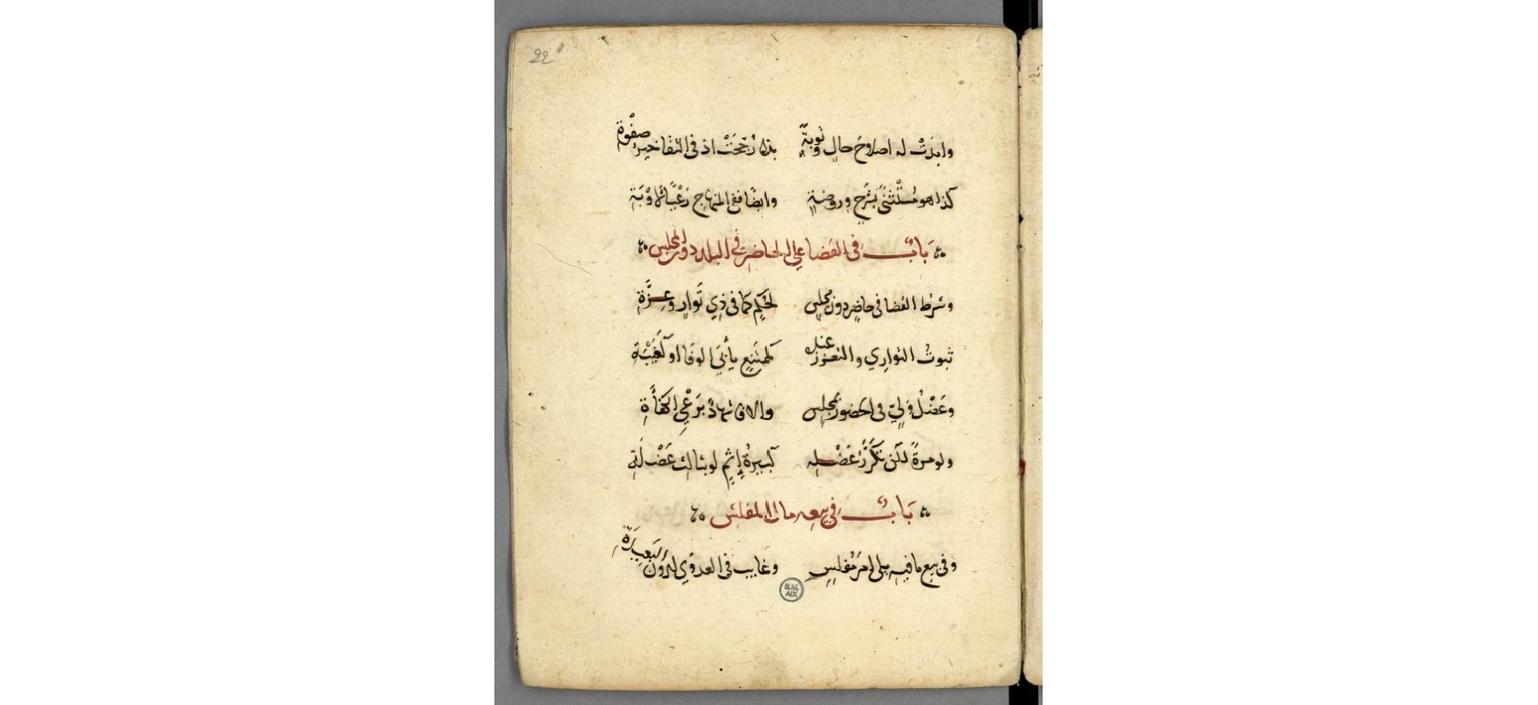 22
وابدَتْ له اصلاحَ حالٍ وتوبةً بذا رُجّحَتْ اذ في التفاخير صفْوة
كذا هو مُسْتَثْنًى بشَرحٍ وروضةٍ وايضًا ففي المنهاج
بَابٌ في القضا على الحاضر في البلد دون المجلس
وشرط القضا في حاضر دون مجلسٍ لحكمٍ كما في ذي تَوارٍ وعِزَّة
ثبوتُ التواري والتعزز عنده كلمتنع يأبَى الوفا او كغَيْبَة
وعَضْلُ وَليّ في الحضور بمجلس والا فاشهادٌ
ولو مرةً لكن تكرُّرُ عَضْله كبيرةُ إثمٍ لو بثالث عَضْلَة
بَابٌ في بيعه مال المفلس
وفي بيع ما فيه يلي امرَ مُفلسٍ وغايب في العدوى